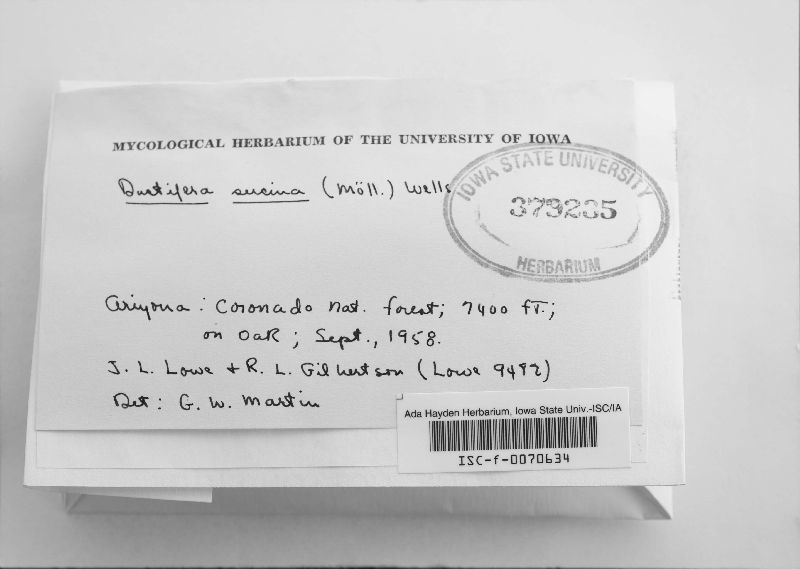 MYCOLOGICAL HERBARIUM OF THE UNIVERSITY OF IOWA
Ductifera sucina (Möll.) Wells
IOWA STATE UNIVERSITY
379235
HERBARIUM
Arizona: Coronado Nat. Forest; 7400 ft.;
on oak; Sept., 1958.
J. L. Lowe + R. L. Gilbertson (Lowe 9492)
Det: G. W. Martin
Ada Hayden Herbarium, Iowa State Univ.-ISC/IA
ISC-f-0070634